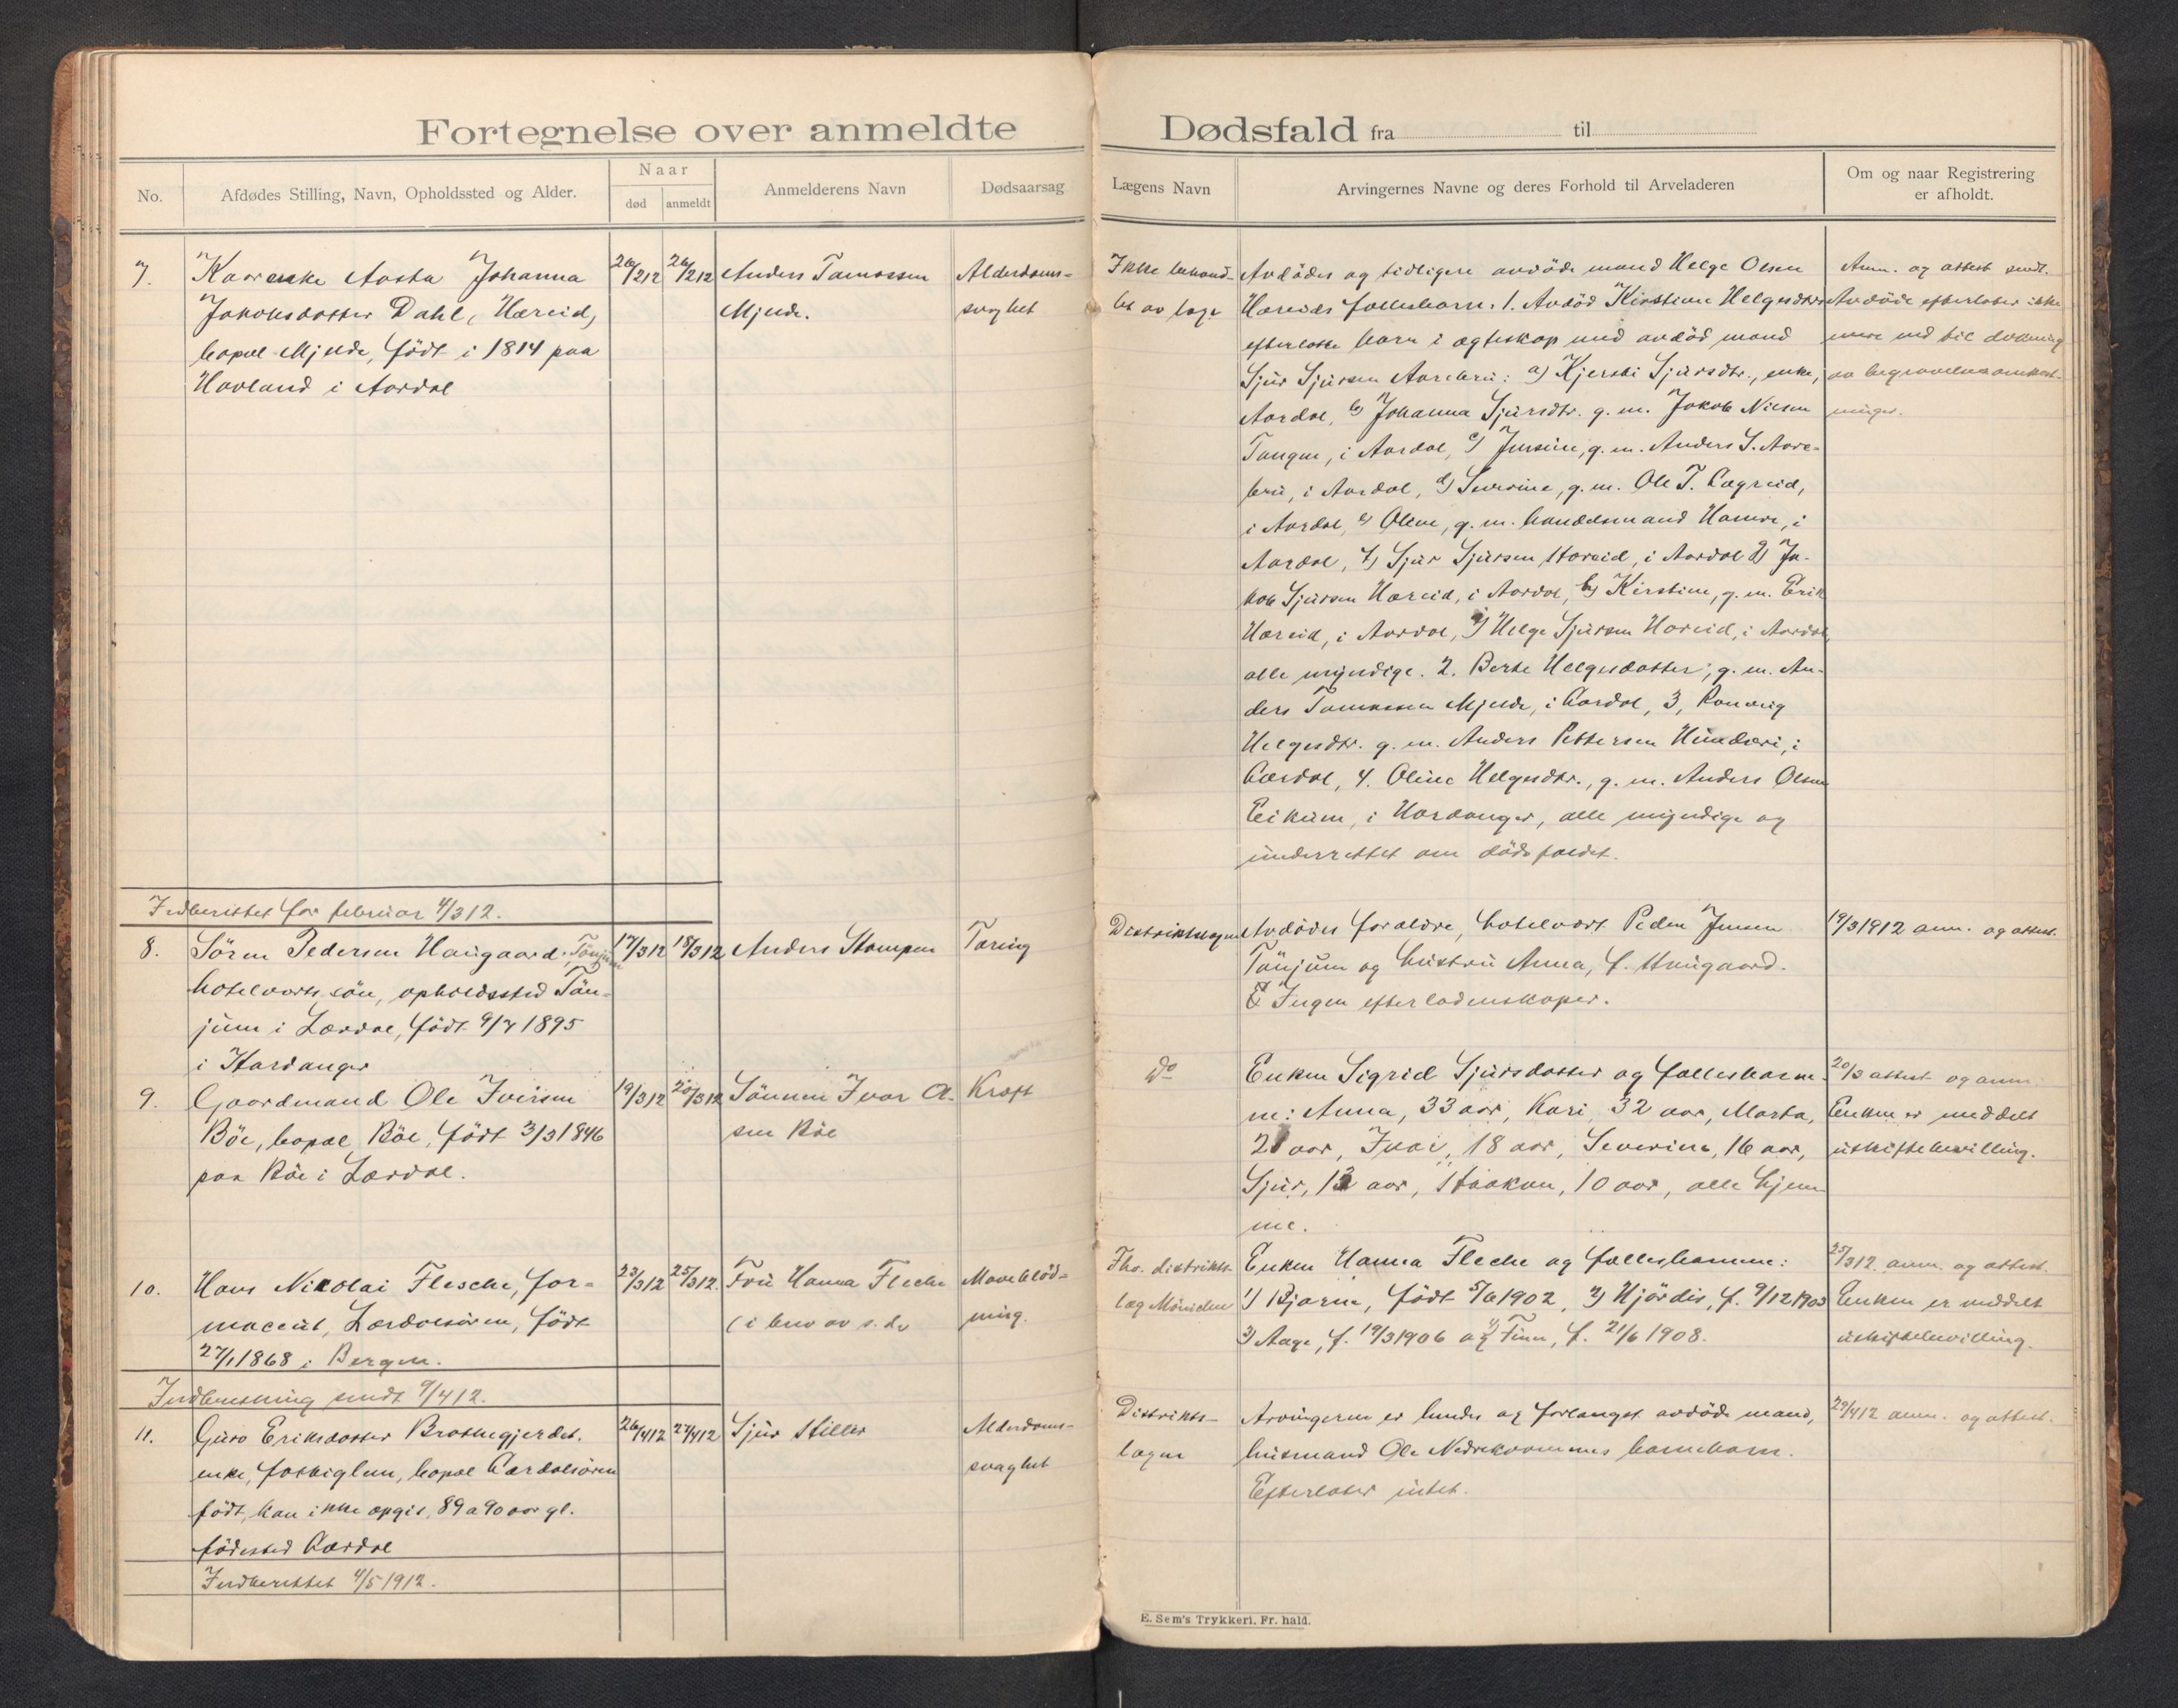 Fortegnelse over anmeldte Dødsfald fra til
No.
Afdødes Stilling, Navn, Opholdssted og Alder.
Naar
død
anmeldt
Anmelderens Navn
Dødsaarsag
Lægens Navn
Arvingernes Navne og deres Forhold til Arveladeren
Om og naar Registrering
er afholdt.
7.
Kaarenke Aasta Johanna
Jakobsdatter Dahl, Hæreid,
bopæl Mjelde, født i 1814 paa
Havland i Aardal
26/2 12
26/2 12
Anders Tamassen
Mjelde.
Alderdoms-
svaghet
Ikke behand-
let av læge
Avdødes og tidligere avdøde mand Helge Olsen
Hæreids fællesbarn: 1. Avdød Kirstine Helgesdtrs
efterlatte barn i ægteskap med avdød mand
Sjur Sjursen Aarebru: a) Kjersti Sjursdtr., enke,
Aardal, b) Johanna Sjursdtr. g. m. Jakob Nilsen
Tangen, i Aardal, c) Jensine, g. m. Anders S. Aare-
bru, i Aardal, d) Severine, g. m. Ole T. Lægreid,
i Aardal, e) Oline, g. m. handelsmand Hamre, i
Aardal, f) Sjur Sjursen Hæreid, i Aardal g) Ja-
kob Sjursen Hæreid, i Aardal, h) Kirstine, g. m. Erik
Hæreid, i Aardal, i) Helge Sjursen Hæreid, i Aardal,
alle myndige. 2. Berte Helgesdatter, g. m. An-
ders Tamassen Mjelde, i Aardal, 3, Ranveig
Helgesdtr. g. m. Anders Pettersen Hundere, i
Aardal, 4. Oline Helgesdtr., g. m. Anders Olsen
Eikum, i Hardanger, alle myndige og
underrettet om dødsfaldet.
Anm. og attest sendt.
Avdøde efterlater ikke
mere end til dekning
av begravelsesomkost-
ninger.
Indberettet for februar 4/3 12.
8.
Søren Pedersen Haugaard, Tønjum
hotelverts søn, opholdssted Tøn-
jum i Lærdal, født 9/7 1895
i Hardanger
17/3 12
18/3 12
Anders Stampen
Tæring
Distriktslægen
Avdødes forældre, hotelvert Peder Jensen
Tønjum og hustru Anna, f. Haugaard.
Ingen efterladenskaper.
19/3 1912 anm. og attest.
9.
Gaardmand Ole Iversen
Bøe, bopæl Bøe, født 3/3 1846
paa Bøe i Lærdal.
19/3 12
20/3 12
Sønnen Ivar O.
sen Bøe
Kræft
do
Enken Sigrid Sjursdatter og fællesbarne-
ne: Anna, 33 aar, Kari, 32 aar, Marta,
21 aar, Ivar, 18 aar, Severine, 16 aar,
Sjur, 13 aar, Haakon, 10 aar, alle hjem-
me.
20/3 attest og anm.
Enken er meddelt
uskiftebevilling.
10.
Hans Nikolai Flesche, far-
maceut, Lærdalsøren, født
27/1 1868 i Bergen.
23/3 12
25/3 12.
Fru Hanna Flesche
(i brev av s. d.
Maveblød-
ning.
Fho. distrikts-
læg
Enken Hanna Flesche og fællesbarnene:
1) Bjarne, født 5/6 1902, 2) Hjørdis, f. 9/12 1903
3) Aage, f. 19/3 1906 og 4) Finn, f. 21/6 1908.
25/3 12. anm. og attest.
Enken er meddelt
uskiftebevilling.
Indberetning sendt 9/4 12.
11.
Guro Eriksdatter Brattegjerdet.
enke, fattiglem, bopæl Aardalsøren
født, kan ikke opgis, 89 a 90 aar gl.
fødested Aardal
26/4 12
27/4 12
Sjur Hiller
Alderdoms-
svaghet
Distrikts-
lægen
Arvingerne er hendes og forlængst avdøde mand,
husmand Ole Nedrekvammes barnebarn.
Efterlater intet.
29/4 12 anm. og attest.
Indberettet 4/5 1912.
E. Sem's Trykkeri, Fr. hald.